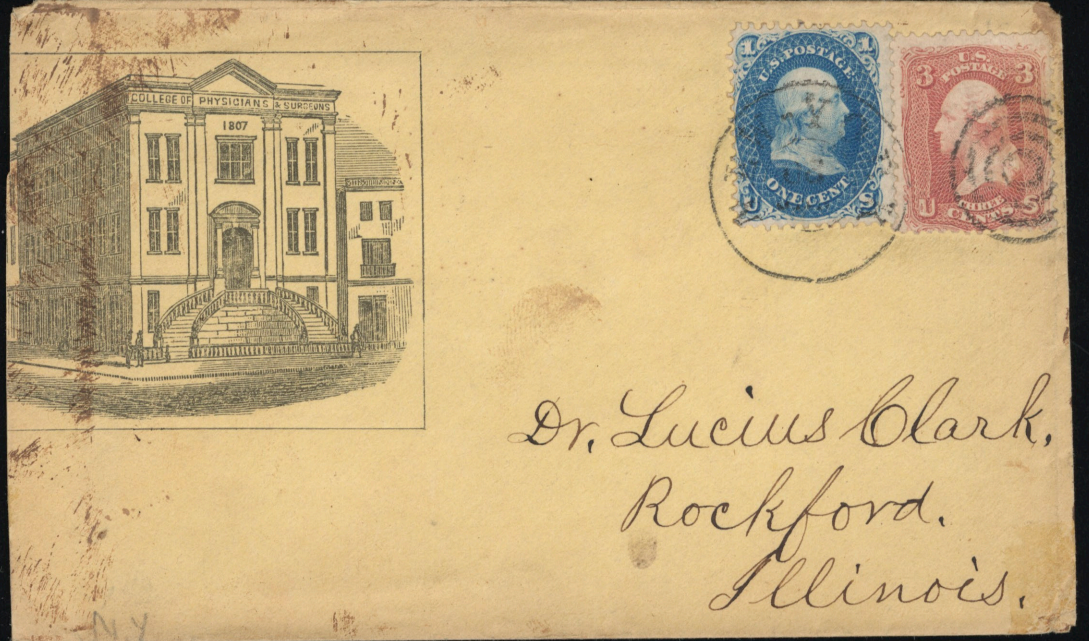 COLLEGE OF PHYSICIANS & SURGEONS
1807
1 1
U.S. POSTAGE
ONE CENT
U S
3 3
U.S.
POSTAGE
THREE
CENTS
U S
Dr. Lucius Clark.
Rockford.
Illinois.
N.Y